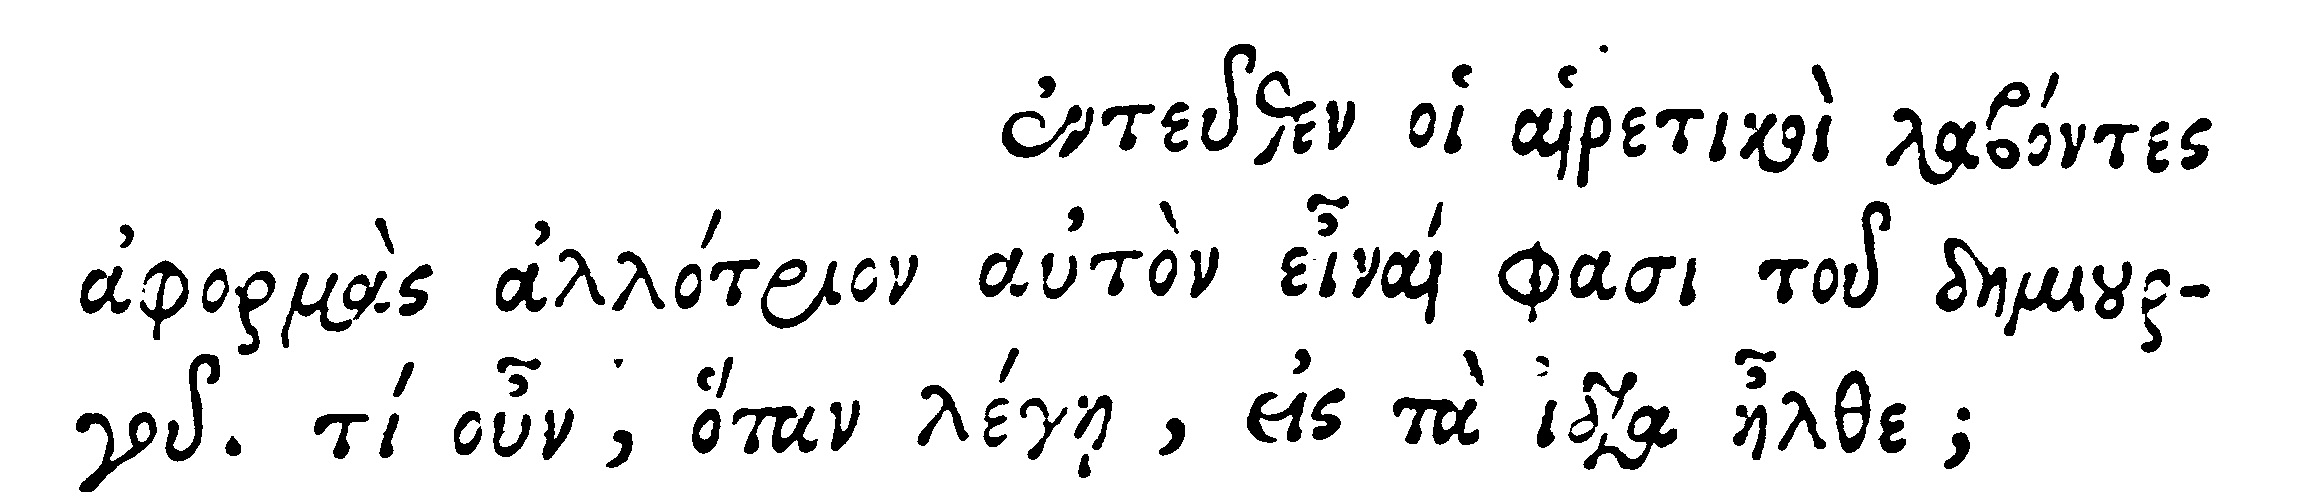 ἐντεῦθεν οἱ αἱρετικοὶ λαβόντες
ἀφορμὰς ἀλλότριον αὐτὸν εἶναί φασι τοῦ δημιουρ-
γοῦ. τί οὖν, ὅταν λέγῃ, εἰς τὰ ἴδια ἦλθε;